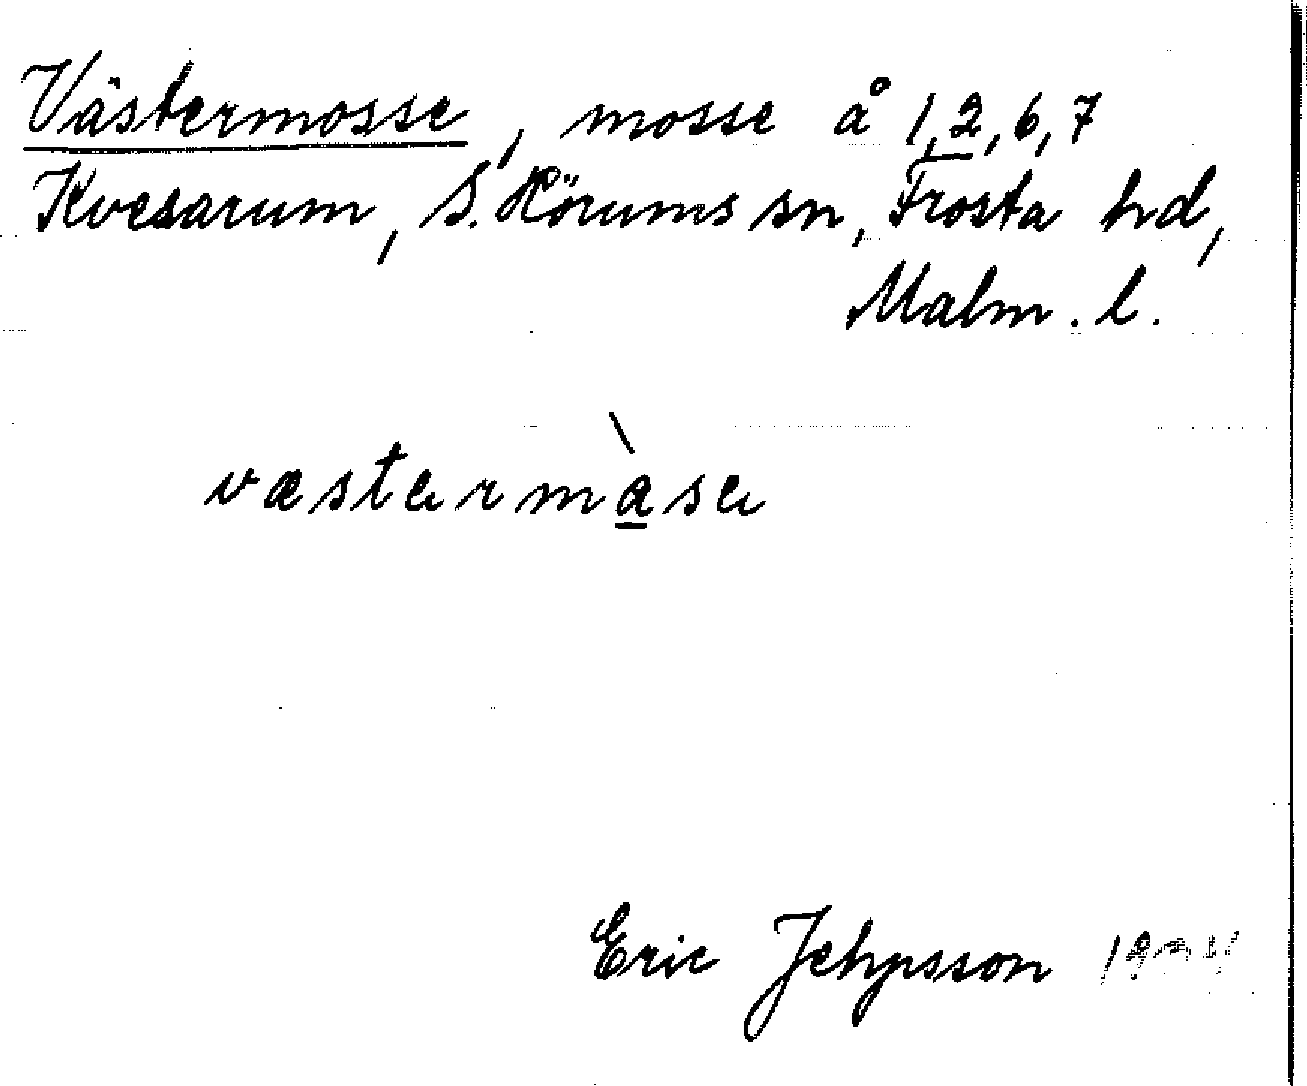 Västermosse, mosse å 1,2,6,7
Kvesarum, S. Hörums sn, Frosta hd,
Malm. l.
væstermàse
Eric Jehpsson